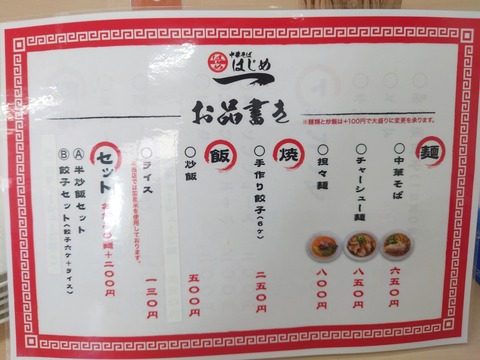 中華そば
はじめ
お品書き
※麺類と炒飯は+100円で大盛りに変更を承ります。
麺
○中華そば 六五〇円
○チャーシュー麺 八五〇円
○担々麺 八〇〇円
焼
○手作り餃子(6ヶ) 二五〇円
飯
○炒飯 五〇〇円
○ライス 一三〇円
※当店では国産米を使用しております。
セット お好みの麺+二〇〇円
Ⓐ半炒飯セット
Ⓑ餃子セット(餃子六ケ+ライス)